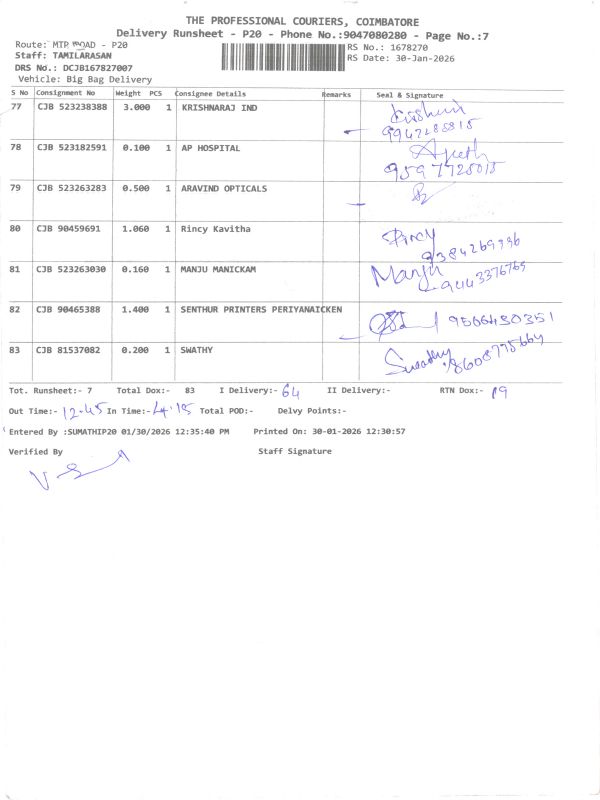 THE PROFESSIONAL COURIERS, COIMBATORE
Delivery Runsheet - P20 - Phone No.:9047080280 - Page No.:7
Route: MTP ROAD - P20 RS No.: 1678270
Staff: TAMILARASAN RS Date: 30-Jan-2026
DRS No.: DCJB167827007
Vehicle: Big Bag Delivery
S No Consignment No Weight PCS Consignee Details Remarks Seal & Signature
77 CJB 523238388 3.000 1 KRISHNARAJ IND
78 CJB 523182591 0.100 1 AP HOSPITAL
79 CJB 523263283 0.500 1 ARAVIND OPTICALS
80 CJB 90459691 1.060 1 Rincy Kavitha Rincy
81 CJB 523263030 0.160 1 MANJU MANICKAM Manju 9443376765
82 CJB 90465388 1.400 1 SENTHUR PRINTERS PERIYANAICKEN 9566430351
83 CJB 81537082 0.200 1 SWATHY Swathy
Tot. Runsheet:- 7 Total Dox:- 83 I Delivery:- 64 II Delivery:- RTN Dox:- 19
Out Time:- 12.45 In Time:- 4.15 Total POD:- Delvy Points:-
Entered By :SUMATHIP20 01/30/2026 12:35:40 PM Printed On: 30-01-2026 12:30:57
Verified By Staff Signature